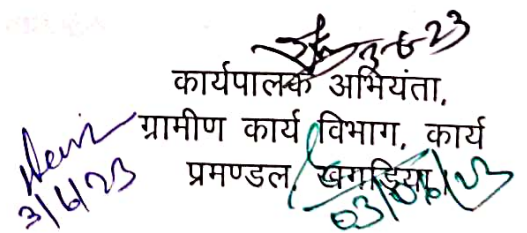 3-6-23
कार्यपालक अभियंता,
ग्रामीण कार्य विभाग, कार्य
प्रमण्डल, खगड़िया।
3/6/23
03/06/23